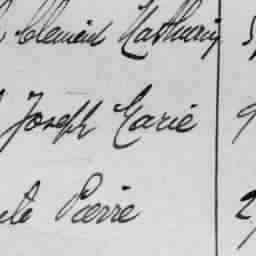 Clément Mathurin 5
Joseph Marie 9
Pierre 2